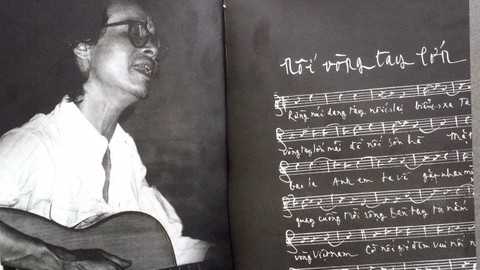 nối vòng tay lớn
Rừng núi dang tay nối lại biển xa Ta
vòng tay lớn mãi để nối Sơn hà Mặt
bao la Anh em ta về gặp nhau
quay cuồng trời rộng bàn tay ta nắm
vòng Việt Nam Cờ nối gió đêm vui nối